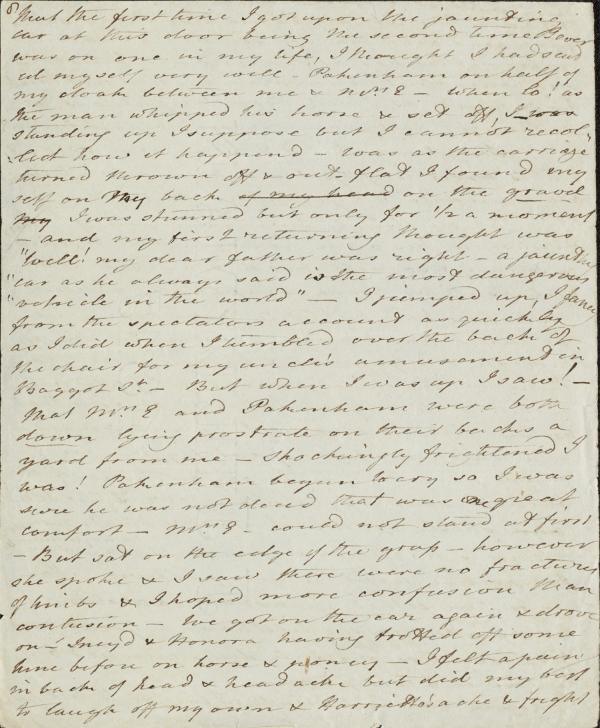 8
that the first time I got upon the jaunting
car at this door being the second time I ever
was on one in my life, I thought I had seid
ed myself very well - Pakenham on half of
my cloak between me & Mrs E - when lo! as
the man whipped his horse & set off, I was
standing up I suppose but I cannot recol
lect how it happend - was as the carriage
turned thrown off & out-flat I found my
self on my back of my head on the gravel
my I was stunned but only for 1/2 a moment
- and my first returning thought was
"Well! my dear father was right - a jaunting
"car as he always said is the most dangerous
"vehicle in the world" - I jumped up, I fancy
from the spectators account as quickly
as I did when I tumbled over the back of
the chair for my uncle's amusement in
Baggot St - But when I was up I saw! -
that Mrs E and Pakenham were both
down lying prostrate on their backs a
yard from me - shockingly frightened I
was! Pakenham began to cry so I was
sure he was not dead that was one great
comfort - Mrs E - could not stand at first
- But sat on the edge of the grass - however
she spoke & I saw there were no fractures
of limbs & I hoped more confusion than
contusion - We got on the car again & drove
on - & Honora having trotted off some
time before on horse & poney - I felt a pain
in back of head & headache but did my best
to laugh off my own & Harriet's ache & fright